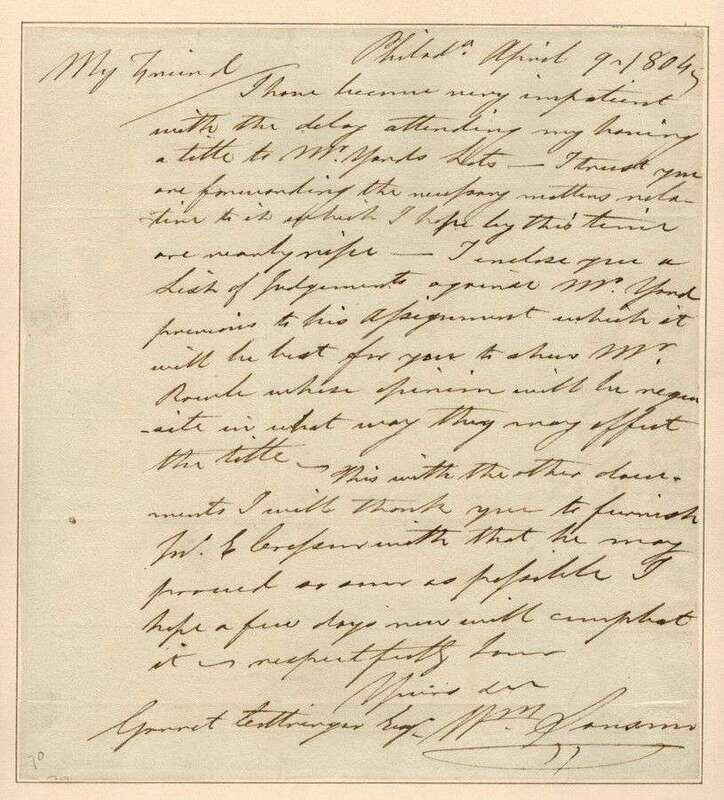 Philada. April 9. 1804
My Friend
I have become very impatient
with the delay attending my having
a title to Mr. Yards Lots — I trust you
are forwarding the necessary matters rela-
-tive to it which I hope by this time
are nearly ripe — I enclose you a
List of Judgements against Mr. Yard
previous to his Assignment which it
will be best for you to shew Mr.
Rawle whose opinion will be requi
-site in what way they may affect
the title — This with the other docu-
ments I will thank you to furnish
E Cresson with that he may
proceed as soon as possible I
hope a few days now will compleat
it — respectfully I am
Yours &c
Garret Cottringer Esqr. Wm. Sansom
70